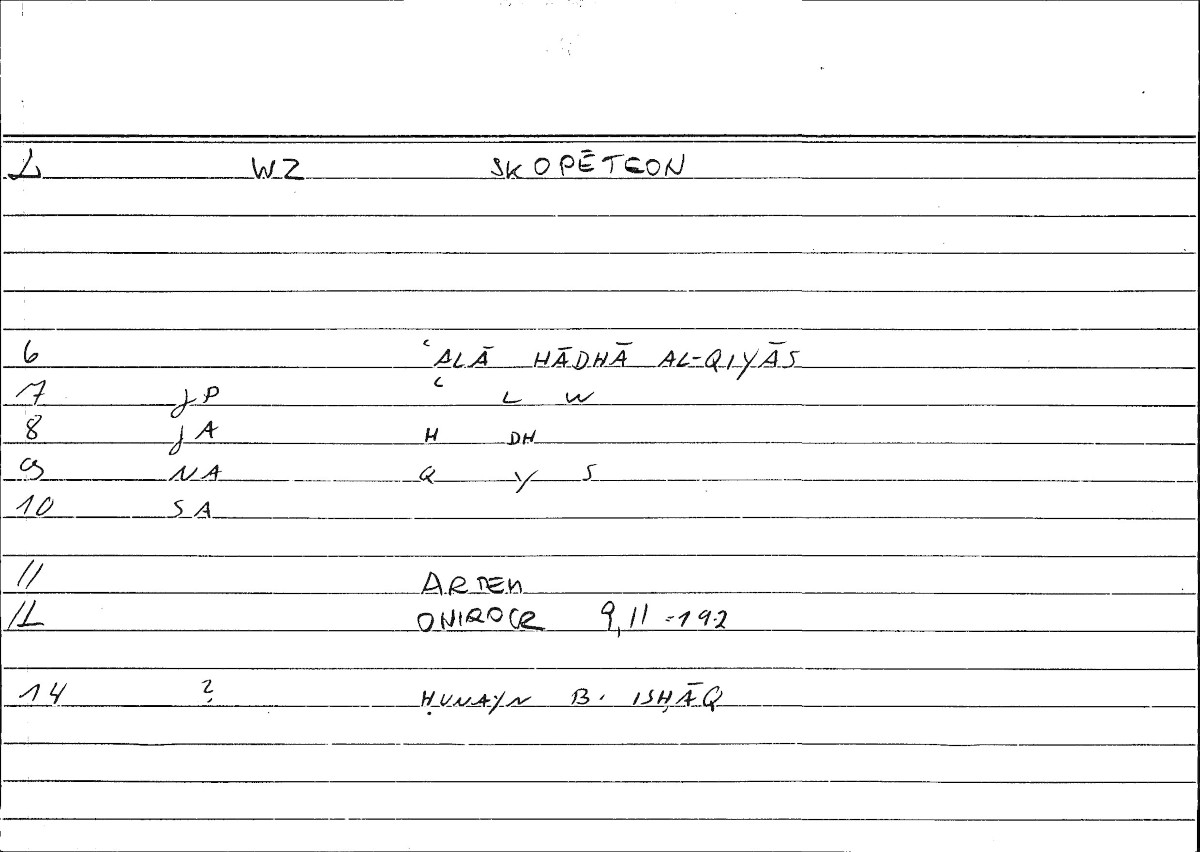 2 WZ SKOPĒTEON
6 ʿALĀ HĀDHĀ AL-QIYĀS
7 JP ʿ L W
8 JA H DH
9 NA Q Y S
10 SA
11 ARTEM
12 ONIROCR 9,11 - 192
14 ? ḤUNAYN B. ISḤĀQ